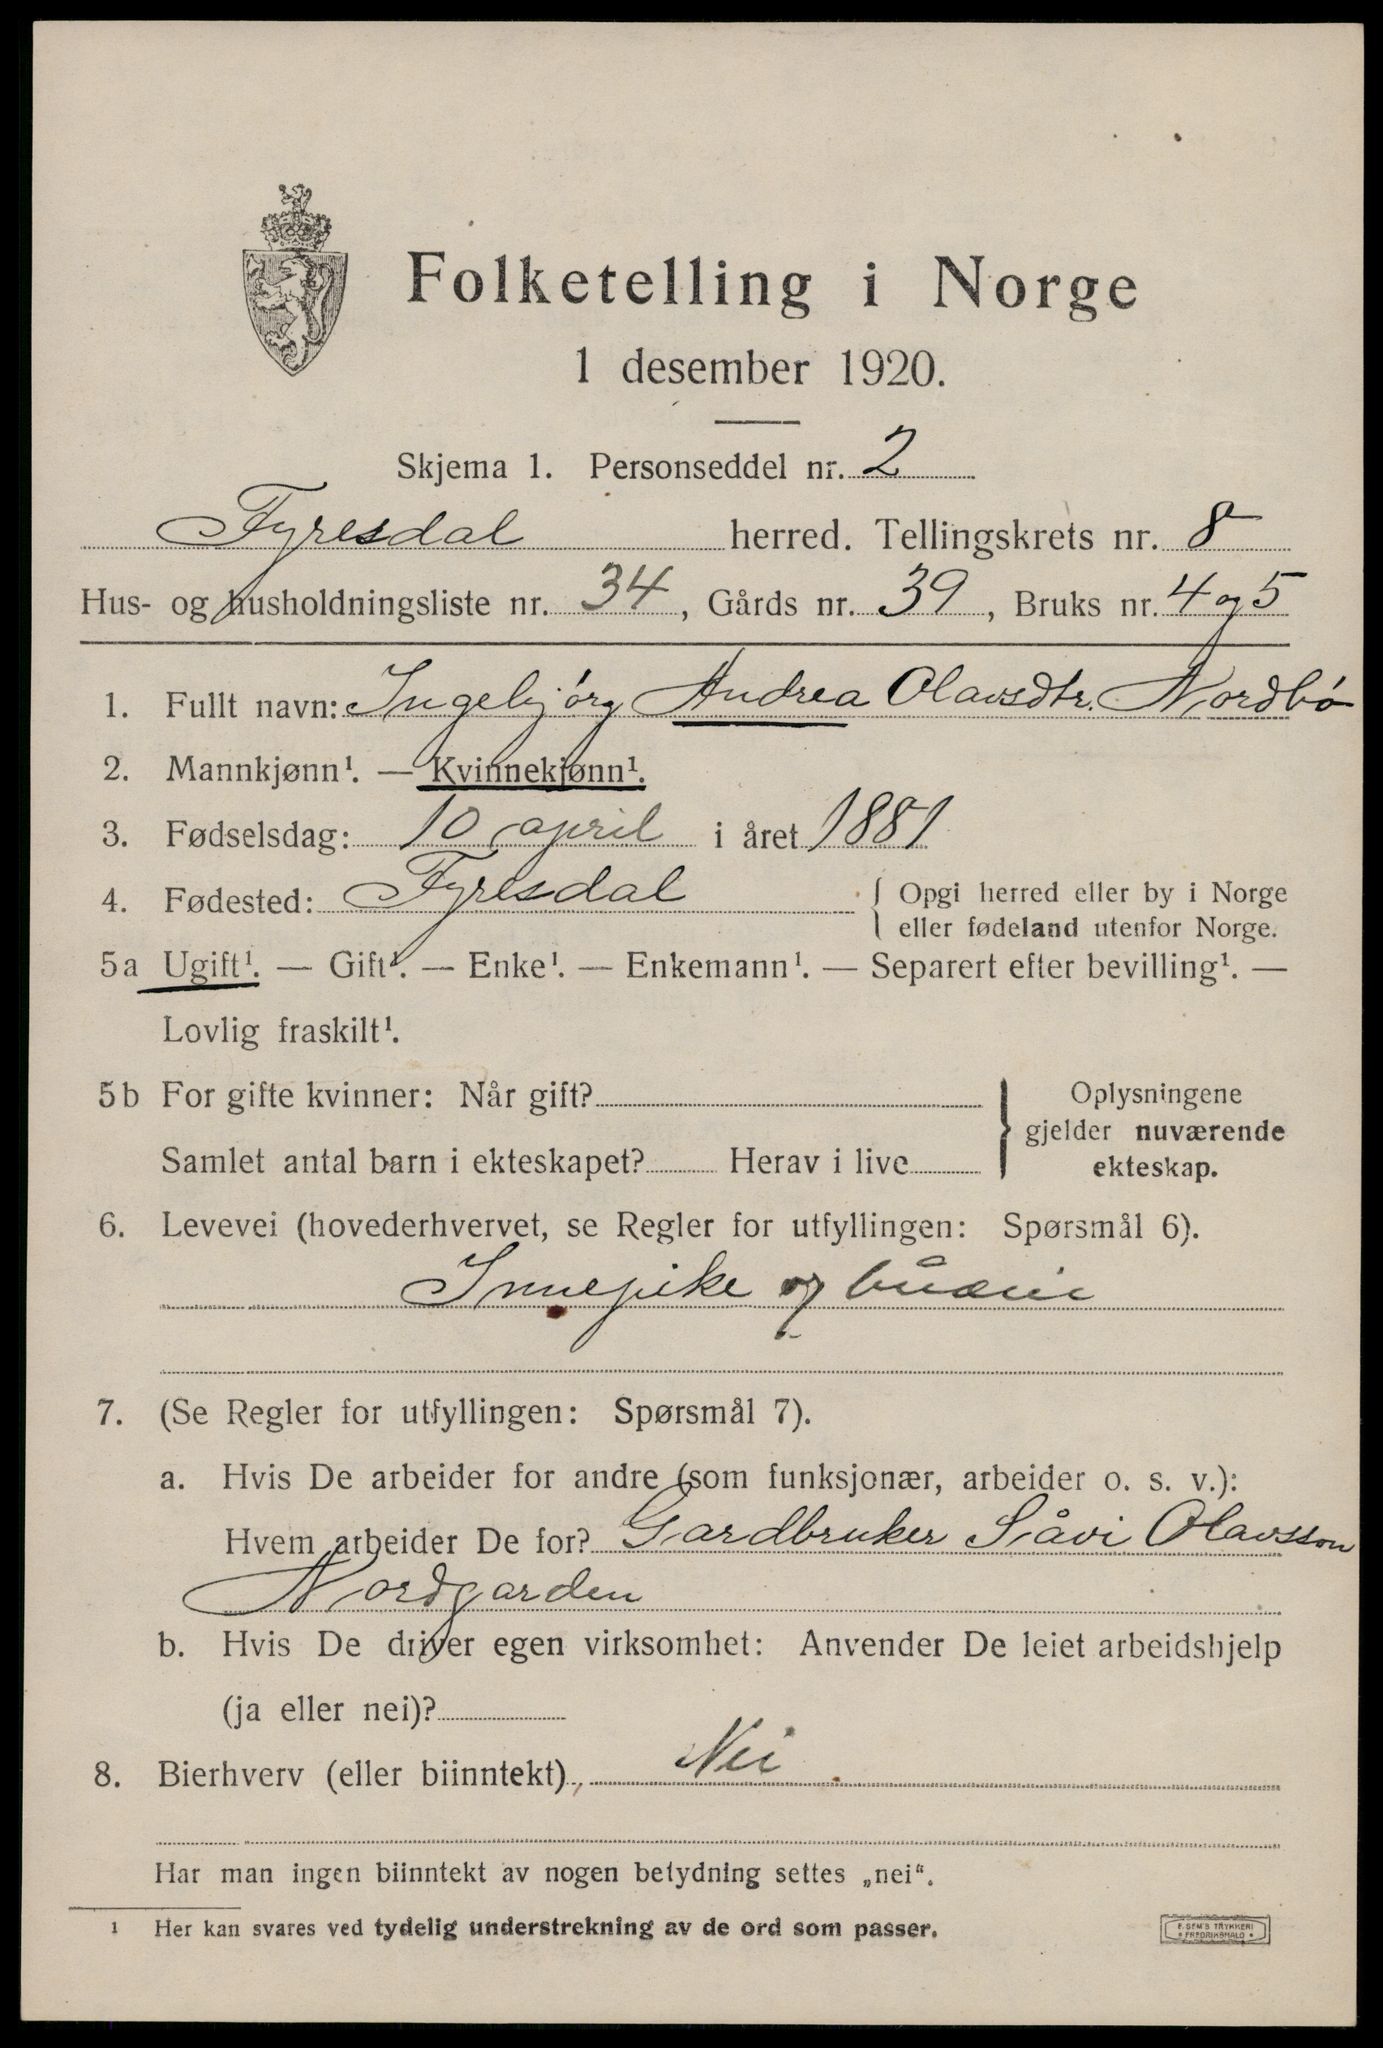 Folketelling i Norge
1 desember 1920.
Skjema 1. Personseddel nr. 2
Fyresdal herred. Tellingskrets nr. 8
Hus- og husholdningsliste nr. 34, Gårds nr. 39, Bruks nr. 4 og 5
1. Fullt navn: Ingebjørg Andrea Olavsdtr. Nordbø
2. Mannkjønn¹. — Kvinnekjønn¹.
3. Fødselsdag: 10 april i året 1881
4. Fødested: Fyresdal { Opgi herred eller by i Norge
eller fødeland utenfor Norge.
5a Ugift¹. — Gift¹. — Enke¹. — Enkemann¹. — Separert efter bevilling¹. —
Lovlig fraskilt¹.
5b For gifte kvinner: Når gift?
Samlet antal barn i ekteskapet? Herav i live
} Oplysningene
gjelder nuværende
ekteskap.
6. Levevei (hovederhvervet, se Regler for utfyllingen: Spørsmål 6).
Innepike og budeie
7. (Se Regler for utfyllingen: Spørsmål 7).
a. Hvis De arbeider for andre (som funksjonær, arbeider o. s. v.):
Hvem arbeider De for? Gardbruker Såvi Olavsson
Nordgarden
b. Hvis De driver egen virksomhet: Anvender De leiet arbeidshjelp
(ja eller nei)?
8. Bierhverv (eller biinntekt) Nei
Har man ingen biinntekt av nogen betydning settes „nei“.
¹ Her kan svares ved tydelig understrekning av de ord som passer.
F. SEM'S TRYKKERI
FREDRIKSHALD